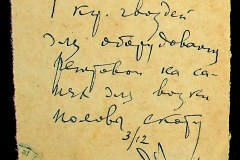 1 кг. гвоздей
для оборудования
решетовой на са-
нях для возки
половы скоту
3/12